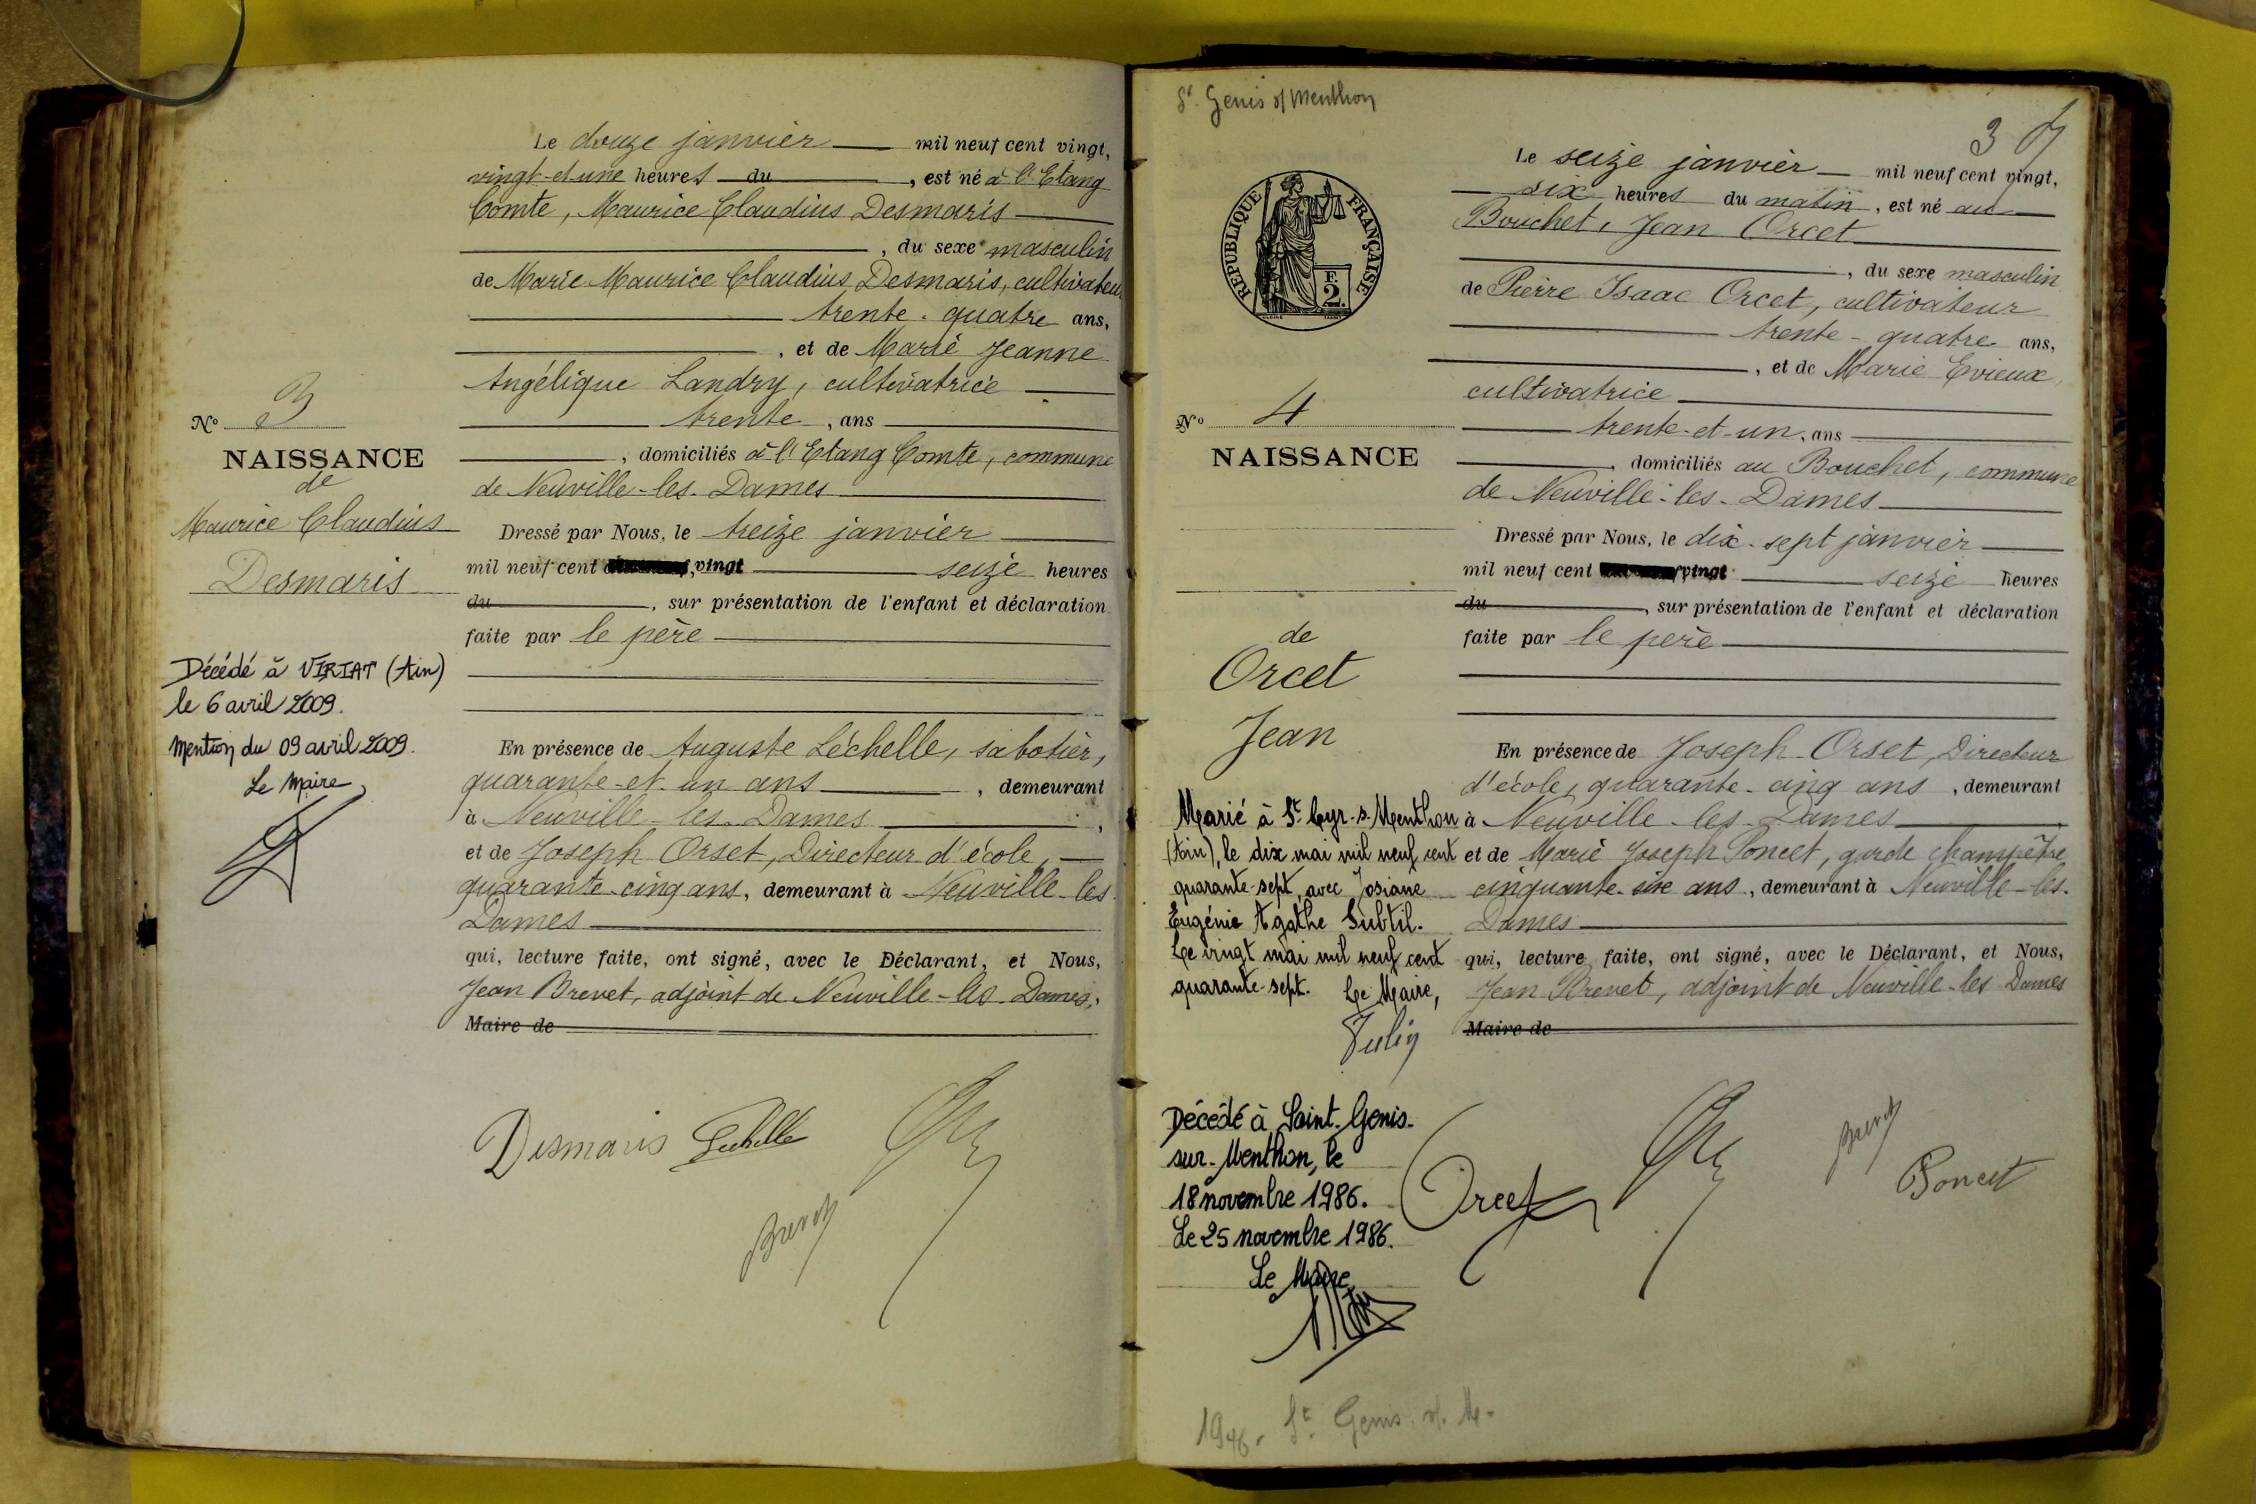 Le douze janvier mil neuf cent vingt,
vingt-et-une heures du , est né à l'Etang
Comte, Maurice Claudius Desmaris
, du sexe masculin
de Marie Maurice Claudius Desmaris, cultivateur
trente-quatre ans,
, et de Marie Jeanne
Angélique Landry, cultivatrice
trente , ans
, domiciliés à l'Etang Comte, commune
de Neuville-les-Dames
Dressé par Nous, le treize janvier
mil neuf cent vingt seize heures
du , sur présentation de l'enfant et déclaration
faite par le père
En présence de Auguste Léchelle, sabotier,
quarante-et-un ans , demeurant
à Neuville-les-Dames ,
et de Joseph Orset, Directeur d'école,
quarante-cinq ans, demeurant à Neuville-les
Dames
qui, lecture faite, ont signé, avec le Déclarant, et Nous,
Jean Brevet, adjoint de Neuville-les-Dames,
Maire de
Desmaris Léchelle
Brevet
No 3
NAISSANCE
de
Maurice Claudius
Desmaris
Décédé à VIRIAT (Ain)
le 6 avril 2009.
Mention du 09 avril 2009.
Le Maire
St. Genis s/ Menthon
3
RÉPUBLIQUE FRANÇAISE
F.
2.
No 4
NAISSANCE
de
Orcet
Jean
Marié à St Cyr-s-Menthon
(Ain), le dix mai mil neuf cent
quarante-sept, avec Josiane
Eugénie Agathe Subtil.
Le vingt mai mil neuf cent
quarante-sept. Le Maire,
Décédé à Saint-Genis-
sur-Menthon, le
18 novembre 1986.
Le 25 novembre 1986.
Le Maire
1946. St. Genis s/. M.
Le seize janvier mil neuf cent vingt,
six heures du matin, est né au
Bouchet, Jean Orcet
, du sexe masculin
de Pierre Isaac Orcet, cultivateur
trente-quatre ans,
, et de Marie Evieux,
cultivatrice
trente-et-un, ans
, domiciliés au Bouchet, commune
de Neuville-les-Dames
Dressé par Nous, le dix-sept janvier
mil neuf cent vingt seize heures
du , sur présentation de l'enfant et déclaration
faite par le père
En présence de Joseph Orset, Directeur
d'école, quarante-cinq ans , demeurant
à Neuville-les-Dames
et de Marie Joseph Poncet, garde champêtre
cinquante-six ans, demeurant à Neuville-les-
Dames
qui, lecture faite, ont signé, avec le Déclarant, et Nous,
Jean Brevet, adjoint de Neuville-les Dames
Maire de
Orcet Brevet
Poncet